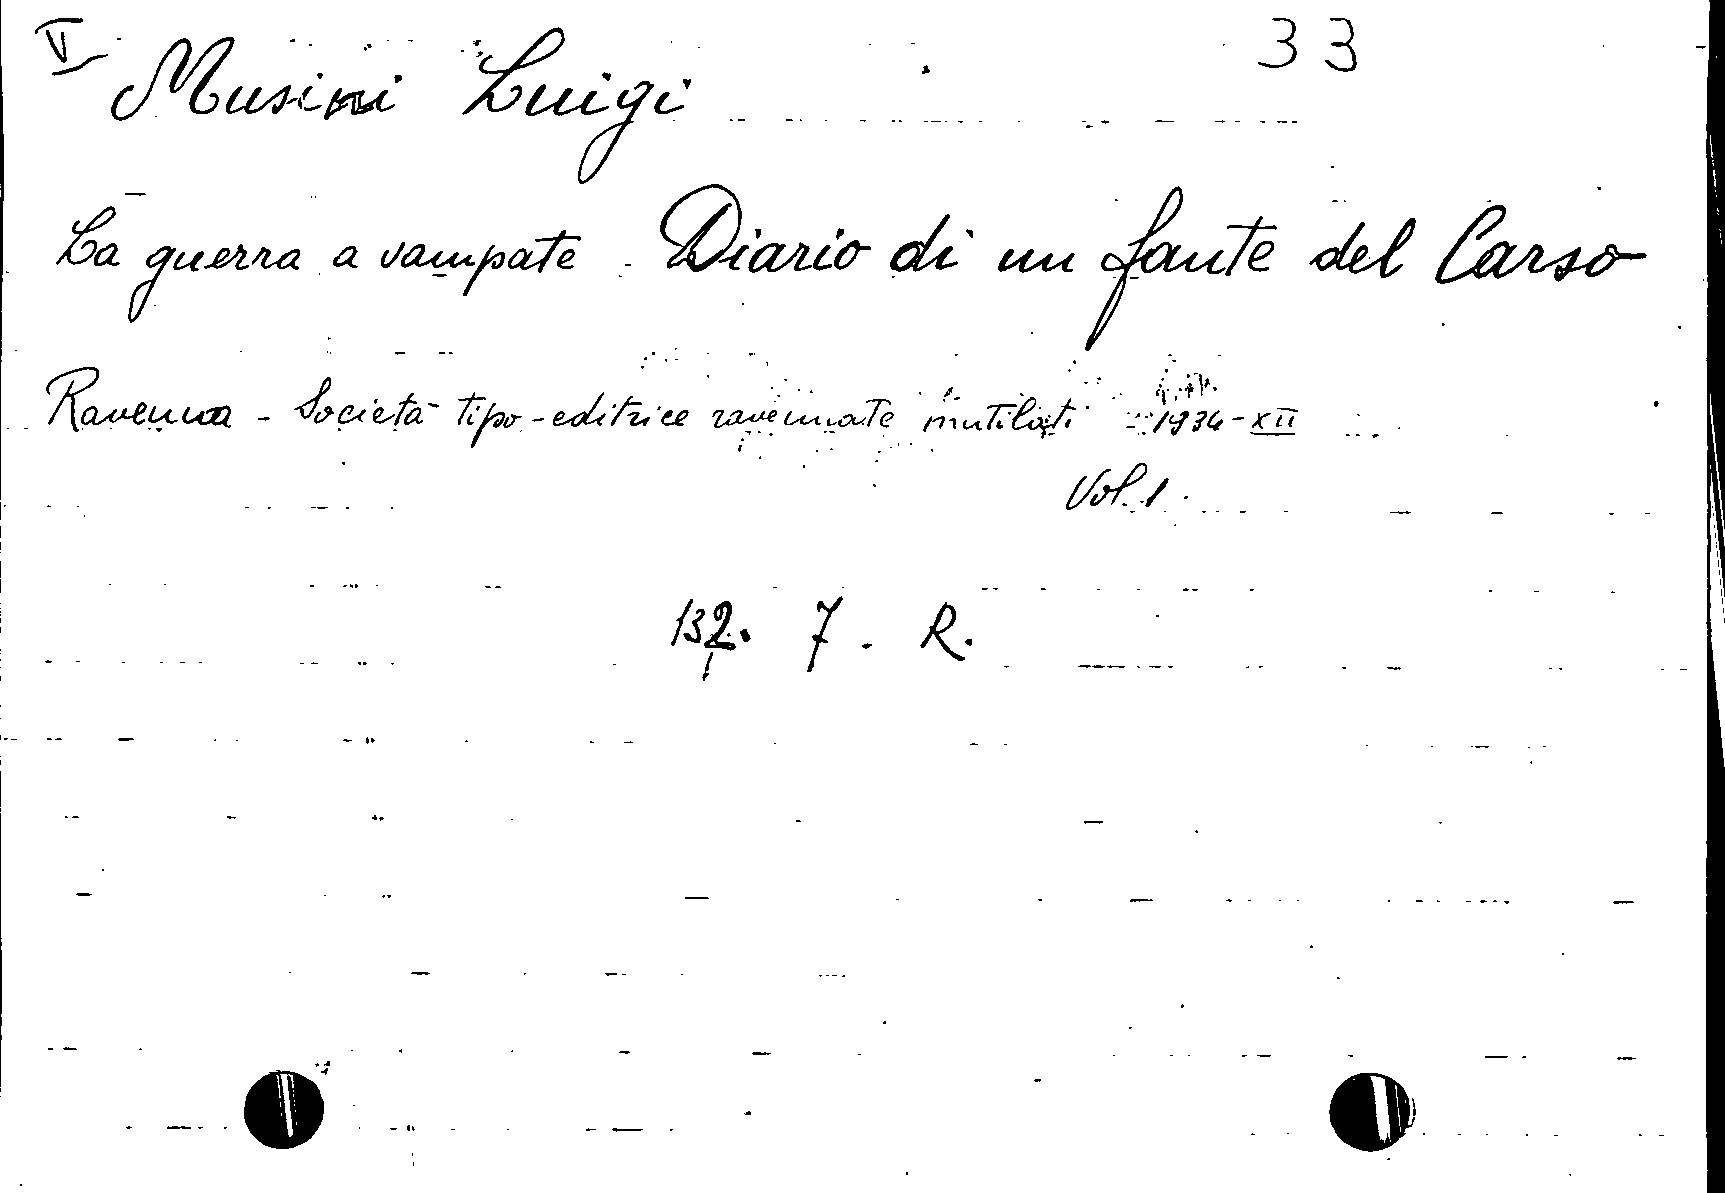 V 33
Musini Luigi
La guerra a vampate - Diario di un fante del Carso
Ravenna - Società tipo-editrice ravennate mutilati - 1934-XII
Vol. 1.
132. 7. R.